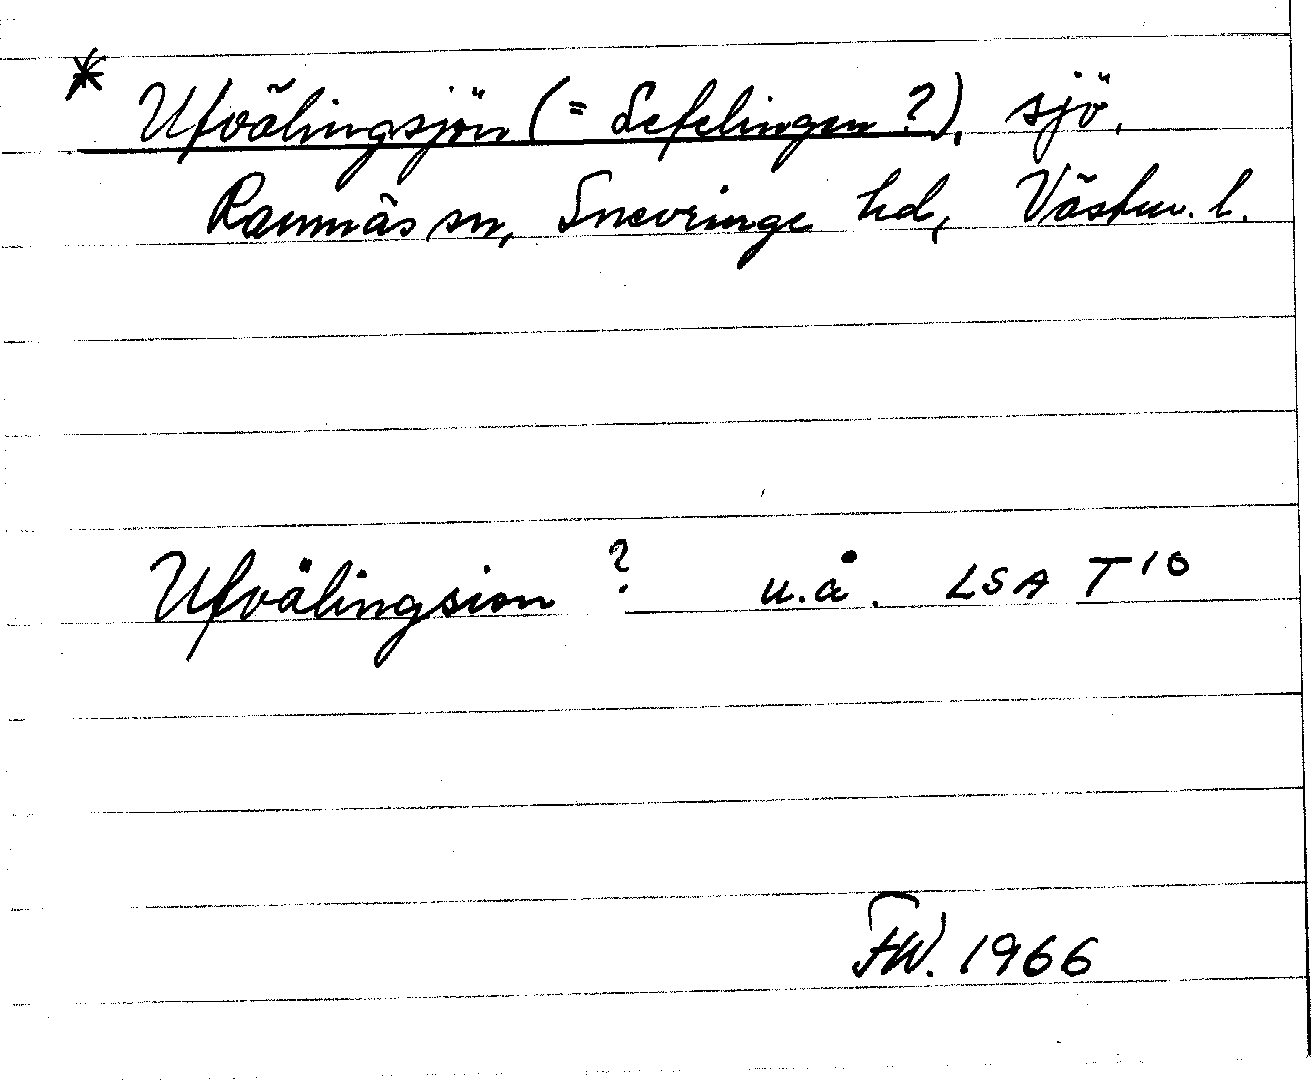 * Ufvälingsjön (= Sefelingen ?), sjö,
Ramnäs sn, Snevringe hd, Västm. l.
Ufvälingsion ? u.å. LSA T 10
FW. 1966